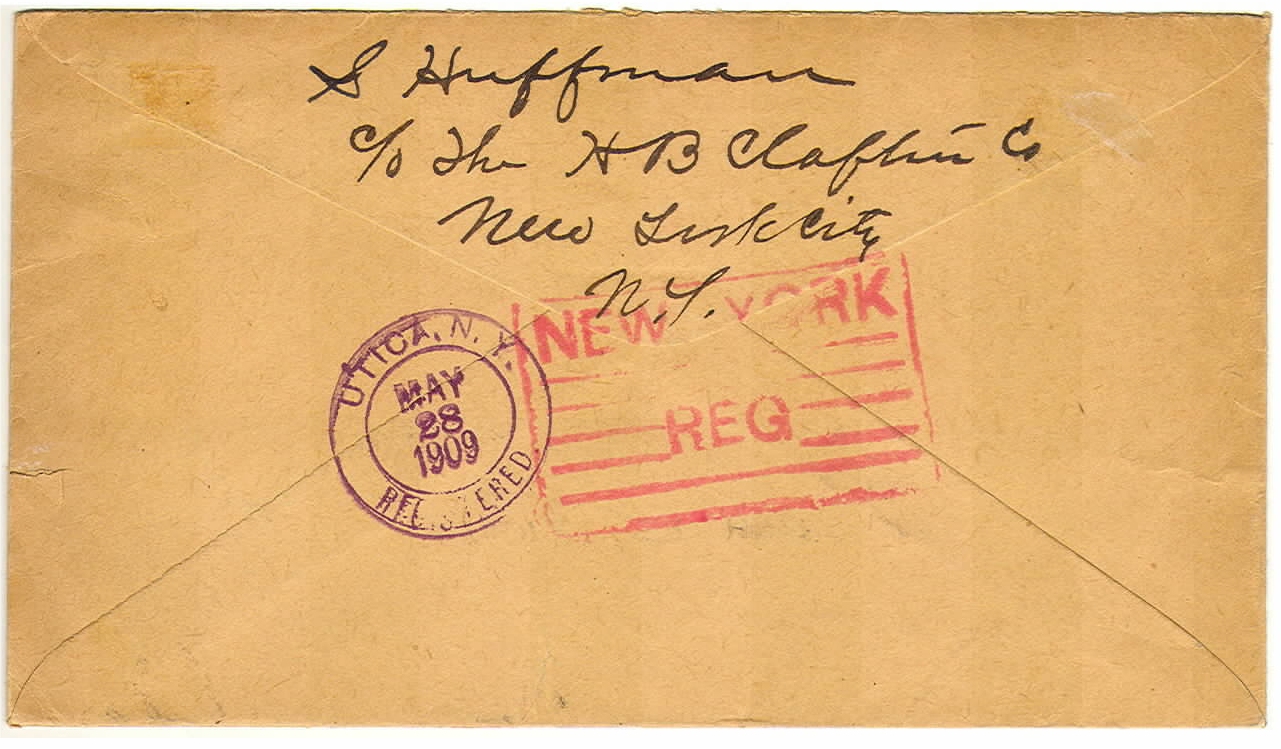 S Huffman
c/o The H B Claflin Co
New York City
N.Y.
NEW YORK
REG
UTICA, N.Y.
MAY
28
1909
REGISTERED